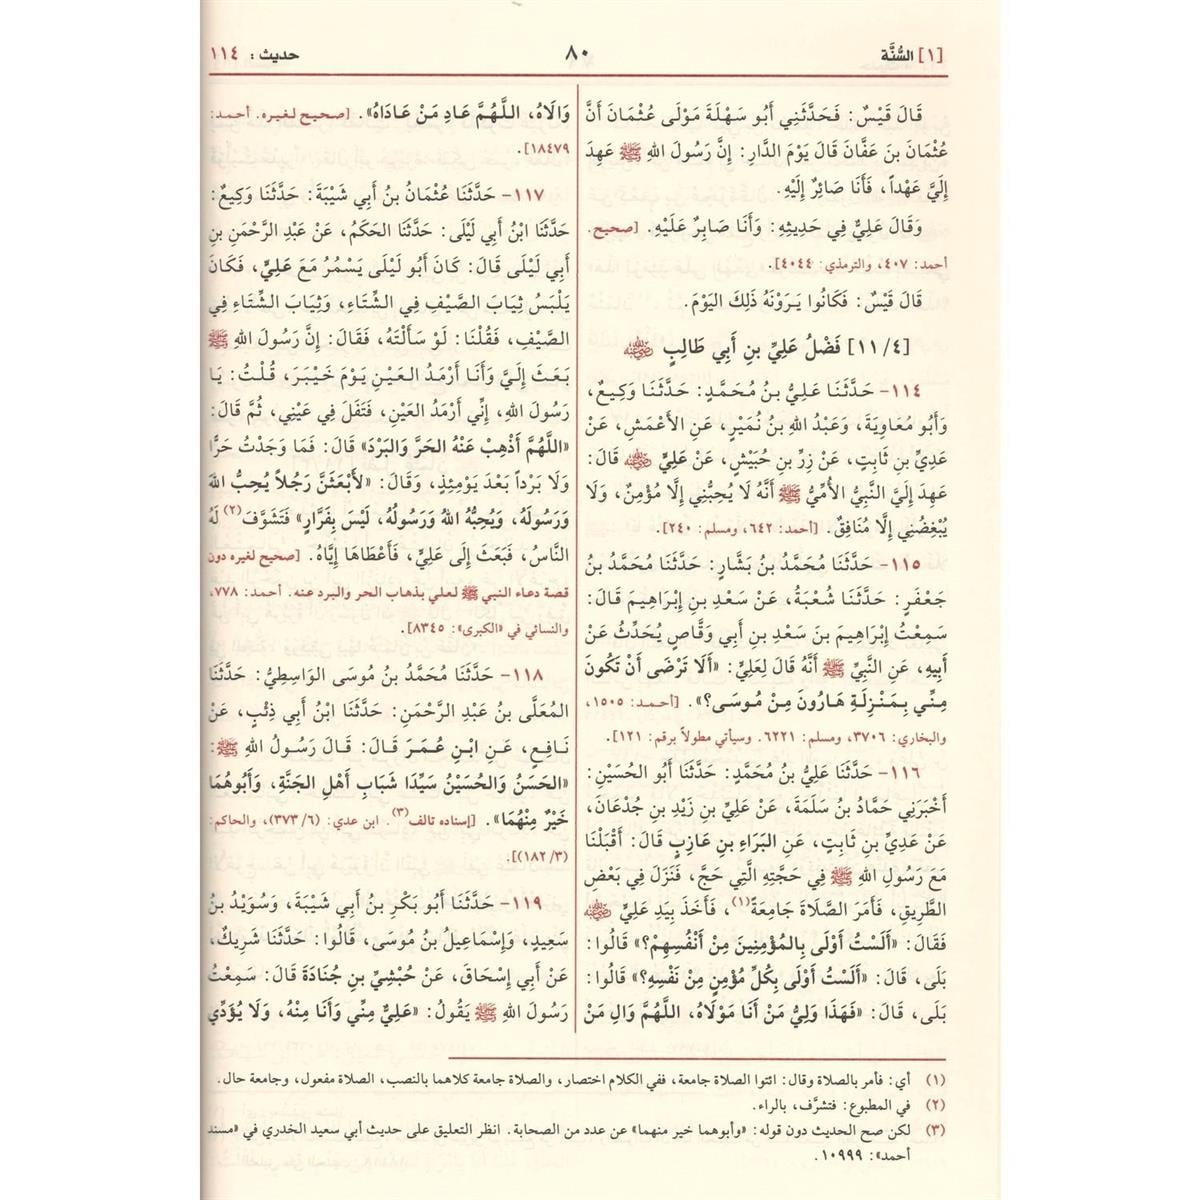 [١] السُّنَّة
٨٠
حديث : ١١٤
قَالَ قَيْسٌ: فَحَدَّثَنِي أَبُو سَهْلَةَ مَوْلَى عُثْمَانَ أَنَّ
عُثْمَانَ بنَ عَفَّانَ قَالَ يَوْمَ الدَّارِ: إِنَّ رَسُولَ اللهِ ﷺ عَهِدَ
إِلَيَّ عَهْداً، فَأَنَا صَائِرٌ إِلَيْهِ.
وَقَالَ عَلِيٌّ فِي حَدِيثِهِ: وَأَنَا صَابِرٌ عَلَيْهِ. [صحيح.
أحمد: ٤٠٧، والترمذي: ٤٠٤٤].
قَالَ قَيْسٌ: فَكَانُوا يَرَوْنَهُ ذَلِكَ اليَوْمَ.
[١١/٤] فَضْلُ عَلِيِّ بنِ أَبِي طَالِبٍ ﵁
١١٤- حَدَّثَنَا عَلِيُّ بنُ مُحَمَّدٍ: حَدَّثَنَا وَكِيعٌ،
وَأَبُو مُعَاوِيَةَ، وَعَبْدُ اللهِ بنُ نُمَيْرٍ، عَنِ الأَعْمَشِ، عَنْ
عَدِيِّ بنِ ثَابِتٍ، عَنْ زِرِّ بنِ حُبَيْشٍ، عَنْ عَلِيٍّ ﵁ قَالَ:
عَهِدَ إِلَيَّ النَّبِيُّ الأُمِّيُّ ﷺ أَنَّهُ لَا يُحِبُّنِي إِلَّا مُؤْمِنٌ، وَلَا
يُبْغِضُنِي إِلَّا مُنَافِقٌ. [أحمد: ٦٤٢، ومسلم: ٢٤٠].
١١٥- حَدَّثَنَا مُحَمَّدُ بنُ بَشَّارٍ: حَدَّثَنَا مُحَمَّدُ بنُ
جَعْفَرٍ: حَدَّثَنَا شُعْبَةُ، عَنْ سَعْدِ بنِ إِبْرَاهِيمَ قَالَ:
سَمِعْتُ إِبْرَاهِيمَ بنَ سَعْدِ بنِ أَبِي وَقَّاصٍ يُحَدِّثُ عَنْ
أَبِيهِ، عَنِ النَّبِيِّ ﷺ أَنَّهُ قَالَ لِعَلِيٍّ: «أَلَا تَرْضَى أَنْ تَكُونَ
مِنِّي بِمَنْزِلَةِ هَارُونَ مِنْ مُوسَى؟». [أحمد: ١٥٠٥،
والبخاري: ٣٧٠٦، ومسلم: ٦٢٢١. وسيأتي مطولاً برقم: ١٢١].
١١٦- حَدَّثَنَا عَلِيُّ بنُ مُحَمَّدٍ: حَدَّثَنَا أَبُو الحُسَيْنِ:
أَخْبَرَنِي حَمَّادُ بنُ سَلَمَةَ، عَنْ عَلِيِّ بنِ زَيْدِ بنِ جُدْعَانَ،
عَنْ عَدِيِّ بنِ ثَابِتٍ، عَنِ البَرَاءِ بنِ عَازِبٍ قَالَ: أَقْبَلْنَا
مَعَ رَسُولِ اللهِ ﷺ فِي حَجَّتِهِ الَّتِي حَجَّ، فَنَزَلَ فِي بَعْضِ
الطَّرِيقِ، فَأَمَرَ الصَّلَاةَ جَامِعَةً(١)، فَأَخَذَ بِيَدِ عَلِيٍّ ﵁
فَقَالَ: «أَلَسْتُ أَوْلَى بِالمُؤْمِنِينَ مِنْ أَنْفُسِهِمْ؟» قَالُوا:
بَلَى، قَالَ: «أَلَسْتُ أَوْلَى بِكُلِّ مُؤْمِنٍ مِنْ نَفْسِهِ؟» قَالُوا:
بَلَى، قَالَ: «فَهَذَا وَلِيُّ مَنْ أَنَا مَوْلَاهُ، اللَّهُمَّ وَالِ مَنْ
وَالَاهُ، اللَّهُمَّ عَادِ مَنْ عَادَاهُ». [صحيح لغيره. أحمد:
١٨٤٧٩].
١١٧- حَدَّثَنَا عُثْمَانُ بنُ أَبِي شَيْبَةَ: حَدَّثَنَا وَكِيعٌ:
حَدَّثَنَا ابْنُ أَبِي لَيْلَى: حَدَّثَنَا الحَكَمُ، عَنْ عَبْدِ الرَّحْمَنِ بنِ
أَبِي لَيْلَى قَالَ: كَانَ أَبُو لَيْلَى يَسْمُرُ مَعَ عَلِيٍّ، فَكَانَ
يَلْبَسُ ثِيَابَ الصَّيْفِ فِي الشِّتَاءِ، وَثِيَابَ الشِّتَاءِ فِي
الصَّيْفِ، فَقُلْنَا: لَوْ سَأَلْتَهُ، فَقَالَ: إِنَّ رَسُولَ اللهِ ﷺ
بَعَثَ إِلَيَّ وَأَنَا أَرْمَدُ العَيْنِ يَوْمَ خَيْبَرَ، قُلْتُ: يَا
رَسُولَ اللهِ، إِنِّي أَرْمَدُ العَيْنِ، فَتَفَلَ فِي عَيْنِي، ثُمَّ قَالَ:
«اللَّهُمَّ أَذْهِبْ عَنْهُ الحَرَّ وَالبَرْدَ» قَالَ: فَمَا وَجَدْتُ حَرًّا
وَلَا بَرْداً بَعْدَ يَوْمِئِذٍ، وَقَالَ: «لأَبْعَثَنَّ رَجُلاً يُحِبُّ اللهَ
وَرَسُولَهُ، وَيُحِبُّهُ اللهُ وَرَسُولُهُ، لَيْسَ بِفَرَّارٍ» فَتَشَوَّفَ(٢) لَهُ
النَّاسُ، فَبَعَثَ إِلَى عَلِيٍّ، فَأَعْطَاهَا إِيَّاهُ. [صحيح لغيره دون
قصة دعاء النبي ﷺ لعلي بذهاب الحر والبرد عنه. أحمد: ٧٧٨،
والنسائي في «الكبرى»: ٨٣٤٥].
١١٨- حَدَّثَنَا مُحَمَّدُ بنُ مُوسَى الوَاسِطِيُّ: حَدَّثَنَا
المُعَلَّى بنُ عَبْدِ الرَّحْمَنِ: حَدَّثَنَا ابْنُ أَبِي ذِئْبٍ، عَنْ
نَافِعٍ، عَنِ ابْنِ عُمَرَ قَالَ: قَالَ رَسُولُ اللهِ ﷺ:
«الحَسَنُ وَالحُسَيْنُ سَيِّدَا شَبَابِ أَهْلِ الجَنَّةِ، وَأَبُوهُمَا
خَيْرٌ مِنْهُمَا». [إسناده تالف(٣). ابن عدي: (٣٧٣/٦)، والحاكم:
(١٨٢/٣)].
١١٩- حَدَّثَنَا أَبُو بَكْرِ بنُ أَبِي شَيْبَةَ، وَسُوَيْدُ بنُ
سَعِيدٍ، وَإِسْمَاعِيلُ بنُ مُوسَى، قَالُوا: حَدَّثَنَا شَرِيكٌ،
عَنْ أَبِي إِسْحَاقَ، عَنْ حُبْشِيِّ بنِ جُنَادَةَ قَالَ: سَمِعْتُ
رَسُولَ اللهِ ﷺ يَقُولُ: «عَلِيٌّ مِنِّي وَأَنَا مِنْهُ، وَلَا يُؤَدِّي
(١) أي: فأمر بالصلاة وقال: ائتوا الصلاة جامعة، ففي الكلام اختصار، والصلاة جامعة كلاهما بالنصب، الصلاة مفعول، وجامعة حال.
(٢) في المطبوع: فتشرَّف، بالراء.
(٣) لكن صح الحديث دون قوله: «وأبوهما خير منهما» عن عدد من الصحابة. انظر التعليق على حديث أبي سعيد الخدري في «مسند
أحمد»: ١٠٩٩٩.